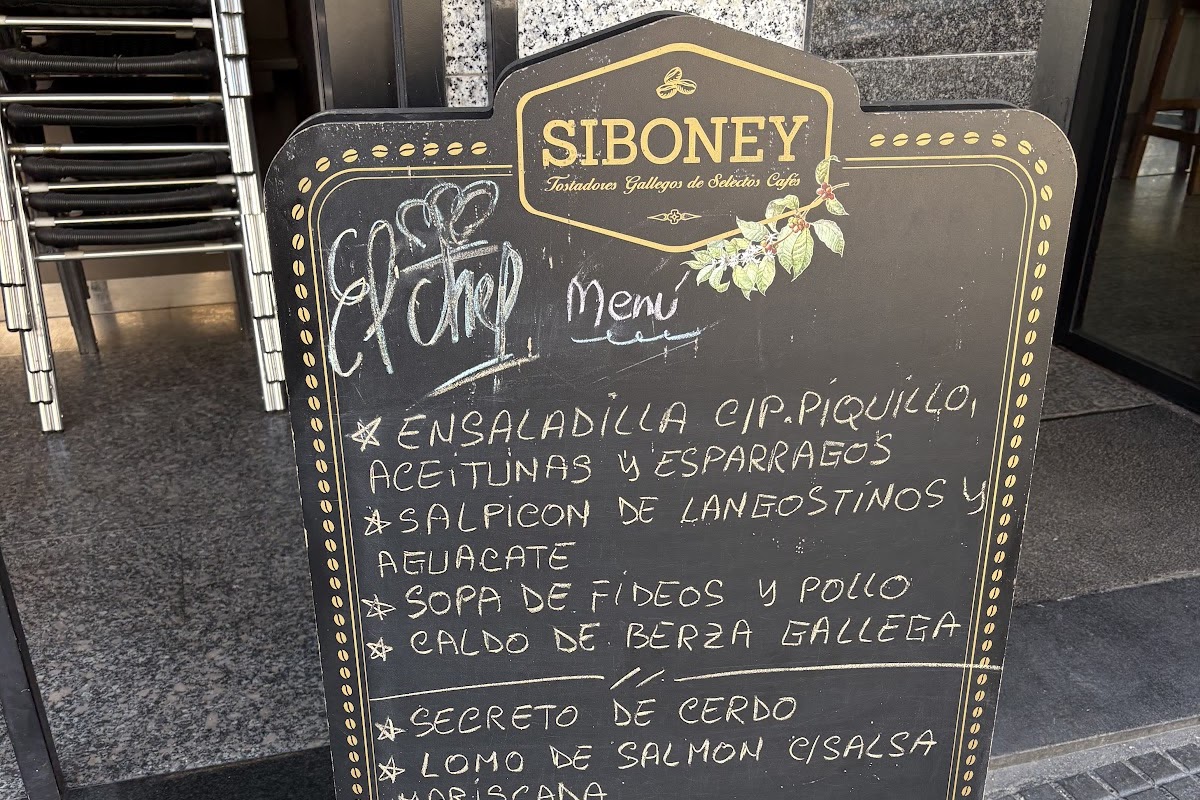 SIBONEY
Tostadores Gallegos de Selectos Cafés
El chef Menú
ENSALADILLA C/P.PIQUILLO,
ACEITUNAS Y ESPARRAGOS
SALPICON DE LANGOSTINOS Y
AGUACATE
SOPA DE FIDEOS Y POLLO
CALDO DE BERZA GALLEGA
SECRETO DE CERDO
LOMO DE SALMON C/SALSA
MARISCADA